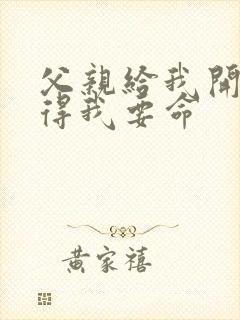 父親給我開
得我要命
黃家禧